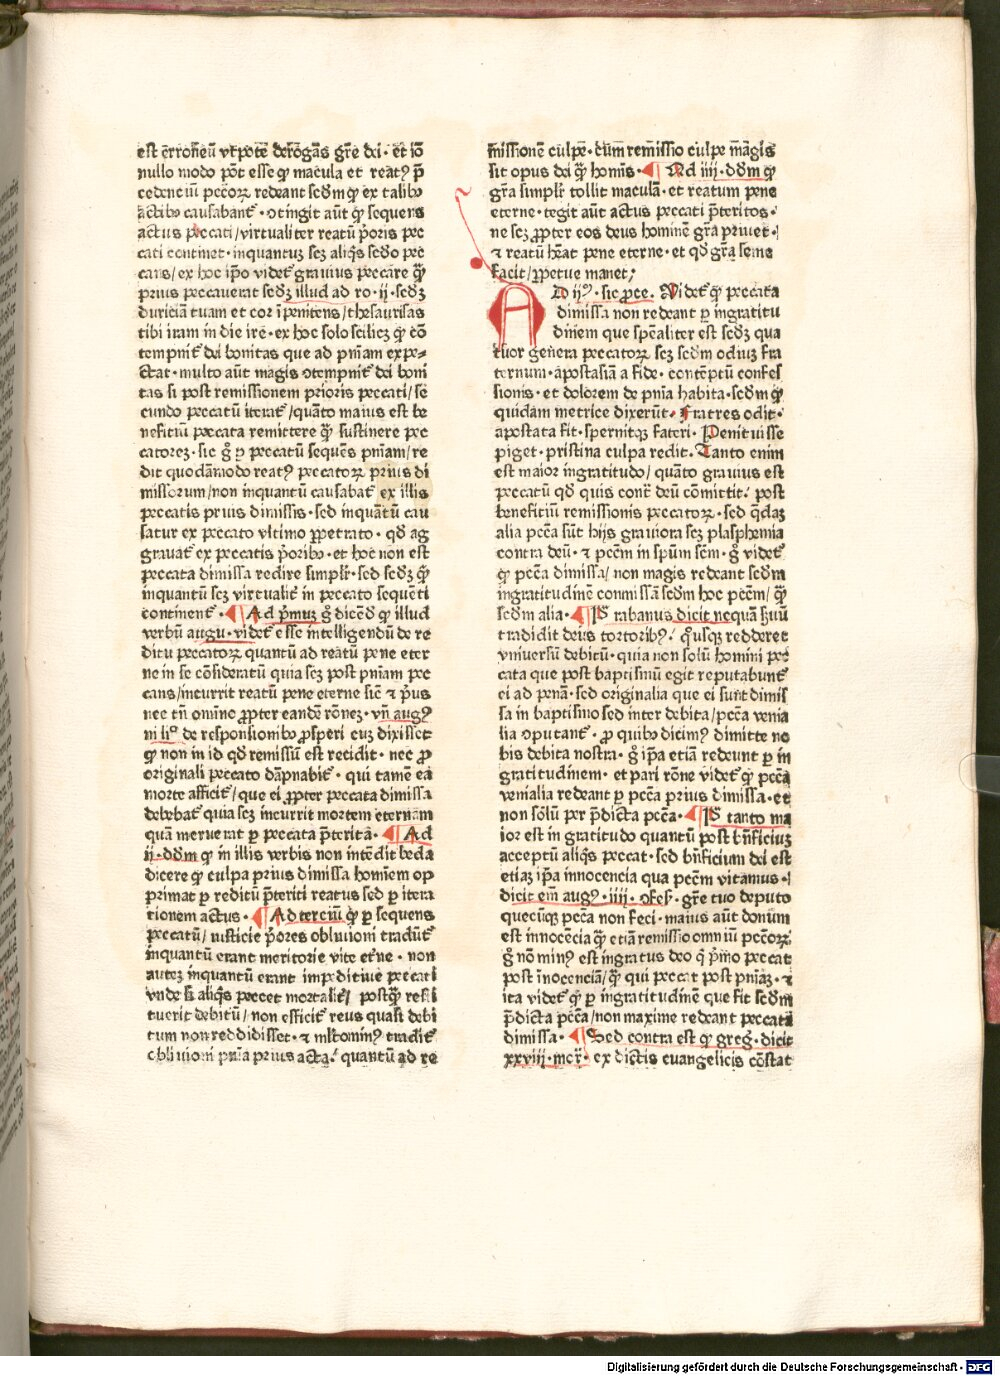 est erroneū vtpote derogās gr̄e dei · et iō
nullo modo pōt esse qͥ macula et reatꝰ p̄
cedenciū pctōꝝ redeant scd̓m qͥ ex talibꝰ
actibꝰ causabant̉ · ꝯtingit aūt qͥ sequens
actus peccati / virtualiter reatū p̓oris pec
cati continet · inquantuꝫ seꝫ aliqͥs scd̓o pec
cans / ex hoc ip̄o videt̉ grauius peccare qͣꝫ
prius peccauerat scd̓ꝫ illud ad ro · ij · scd̓ꝫ
duriciam tuam et cor īpenitens / thesaurisas
tibi iram in die ire · ex hoc solo scilicꝫ qͥ cō
tempnit̉ dei bonitas que ad pn̄iam expe⸗
ctat · multo aūt magis ꝯtempnit̉ dei boni
tas si post remissionem prioris peccati / se
cundo peccatū iterat̉ / quāto maius est be
neficiū peccata remittere qͣꝫ sustinere pec
catoreꝫ · sic gͦ ꝑ peccatū sequēs pn̄iam / re
dit quodāmodo reatꝰ peccatoꝝ prius di
missorum / non inquantū causabat̉ ex illis
peccatis prius dimissis · sed inquātū cau
satur ex peccato vltimo ꝑpetrato · qd̓ ag
grauat̉ ex peccatis p̓oribꝰ · et hoc non est
peccata dimissa redire simplr̄ · sed scd̓ꝫ qͣꝫ
inquantū seꝫ virtualit̉ in peccato sequēti
continent̉ · ¶ Ad p̓muꝫ gͦ dicēd̓ qͥ illud
verbū augu · videt̉ esse intelligendū de re
ditu peccatoꝝ quantū ad reatū pene eter
ne in se cōsideratū quia seꝫ post pn̄iam pec
cans / incurrit reatū pene eterne sic̄ ⁊ p̓us
nec tn̄ omīno ꝓpter eandē rōneꝫ · vn̄ augꝰ
in liͦ de responsionibꝰ ꝓsperi cuꝫ dixisset
qͥ non in id qd̓ remissū est recidit · nec ꝓ
originali peccato dāpnabit̉ · qui tamē ea
morte afficit̉ / que ei ꝓpter peccata dimissa
debebat̉ quia seꝫ incurrit mortem eternam
quā meruerat ꝑ peccata p̄terita · ¶ Ad
ij · d̓dm qͥ in illis verbis non intēdit beda
dicere qͥ culpa prius dimissa homīem op
primat ꝑ reditū p̄teriti reatus sed ꝑ itera
tionem actus · ¶ Ad terciū qͥ ꝑ sequens
peccatū / iusticie p̓ores obliuioni tradūt̉
inquantū erant meritorie vite et̓ne · non
auteꝫ inquantū erant impeditiue peccati
vnde si aliqͥs peccet mortalit̉ / postqͣꝫ resti
tuerit debitū / non efficit̉ reus quasi debi
tum non reddidisset · ⁊ ml̓tominꝰ tradit̉
obliuioni pn̄ia prius acta · quantū ad re
missionē culpe · cum remissio culpe magis
sit opus dei qͣꝫ homīs · ¶ Ad iiij · d̓dm qͥ
gr̄a simplr̄ tollit maculā · et reatum pene
eterne · tegit aūt actus peccati p̄teritos ·
ne seꝫ ꝓpter eos deus hominē gr̄a priuet ·
⁊ reatū hēat pene eterne · et qd̓ gr̄a semel
facit / ꝑpetue manet ;
AD ijꝰ · sic ꝓce. Videt̉ qͥ peccata
dimissa non redeant ꝑ ingratitu
dinem que spēaliter est scd̓ꝫ qua
tuor genera peccatoꝝ seꝫ scd̓m odiuꝫ fra
ternum · apostasiā a fide · contēptū confes
sionis · et dolorem de pn̄ia habita · scd̓m qͥ
quidam metrice dixerūt · Fratres odit ·
apostata fit · spernitqꝫ fateri · Penituisse
piget · pristina culpa redit. Tanto enim
est maior ingratitudo / quāto grauius est
peccatū qd̓ quis cont̓ deū cōmittit · post
beneficiū remissionis peccatoꝝ · sed qͥdaꝫ
alia pctā sūt hijs grauiora seꝫ plasphemia
contra deū · ⁊ pctm̄ in spūm scm̄ · gͦ videt̉
qͥ pctā dimissa / non magis redeant scd̓m
ingratitudinē commissā scd̓m hoc pctm̄ / qͣꝫ
scd̓m alia · ¶ P̄ rabanus dicit nequā ẜuū
tradidit deus tortoribꝰ · qͦusqꝫ redderet
vniuersū debitū · quia non solū homini pec
cata que post baptismū egit reputabunt̉
ei ad penā · sed originalia que ei sunt dimis
sa in baptismo sed inter debita / pctā venia
lia ꝯputant̉ · ꝓ quibꝰ dicimꝰ dimitte no
bis debita nostra · gͦ ip̄a etiā redeunt ꝑ in
gratitudinem · et pari rōne videt̉ qͥ pctā
venialia redeant ꝑ pctā prius dimissa · et
non solū per p̄dicta pctā · ¶ P̄ tanto ma
ior est ingratitudo quantū post bn̄ficiuꝫ
acceptū aliqͥs peccat · sed bn̄ficium dei est
etiaꝫ ip̄a innocencia qua pctm̄ vitamus ·
dicit em̄ augꝰ · iiij · ꝯfes · gr̄e tue deputo
quecūqꝫ pctā non feci · maius aūt donum
est innocēcia qͣꝫ etiā remissio omniū pctōꝝ
gͦ nō minꝰ est ingratus deo qͥ p̓mo peccat
post īnocenciā / qͣꝫ qui peccat post pn̄iaꝫ · ⁊
ita videt̉ qͥ ꝑ ingratitudinē que fit scd̓m
p̄dicta pctā / non maxime redeant peccata
dimissa · ¶ Sed contra est qͥ greg̓ · dicit
xxviij · mor̄ · ex dictis euangelicis cōstat
Digitalisierung gefördert durch die Deutsche Forschungsgemeinschaft - DFG